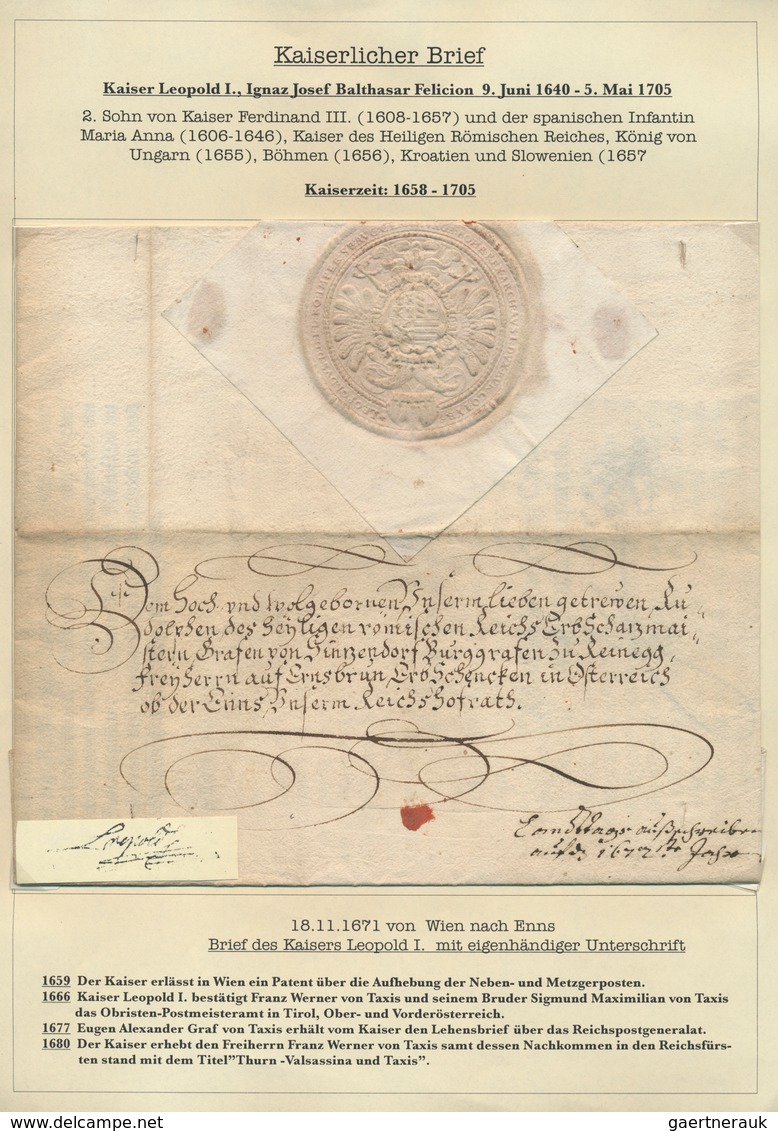 Kaiserlicher Brief
Kaiser Leopold I., Ignaz Josef Balthasar Felicion 9. Juni 1640 - 5. Mai 1705
2. Sohn von Kaiser Ferdinand III. (1608-1657) und der spanischen Infantin
Maria Anna (1606-1646), Kaiser des Heiligen Römischen Reiches, König von
Ungarn (1655), Böhmen (1656), Kroatien und Slowenien (1657
Kaiserzeit: 1658 - 1705
Dem Hoch- vnd Wolgebornen Vnserm lieben getrewen, Ru-
dolphen des Heyligen römischen Reichs ErbSchazmai-
stern, Grafen von Sinzendorf Burggrafen zu Reinegg,
Freyherrn auf Ernsbrun, ErbSchencken in Österreich
ob der Enns, Vnserm Reichshofrath.
Leopold
Landttags außschreiben
auf dz 1672te Jahr
18.11.1671 von Wien nach Enns
Brief des Kaisers Leopold I. mit eigenhändiger Unterschrift
1659 Der Kaiser erlässt in Wien ein Patent über die Aufhebung der Neben- und Metzgerposten.
1666 Kaiser Leopold I. bestätigt Franz Werner von Taxis und seinem Bruder Sigmund Maximilian von Taxis
das Obristen-Postmeisteramt in Tirol, Ober- und Vorderösterreich.
1677 Eugen Alexander Graf von Taxis erhält vom Kaiser den Lehensbrief über das Reichspostgeneralat.
1680 Der Kaiser erhebt den Freiherrn Franz Werner von Taxis samt dessen Nachkommen in den Reichsfürs-
ten stand mit dem Titel"Thurn -Valsassina und Taxis".
www.delcampe.net
gaertnerauk